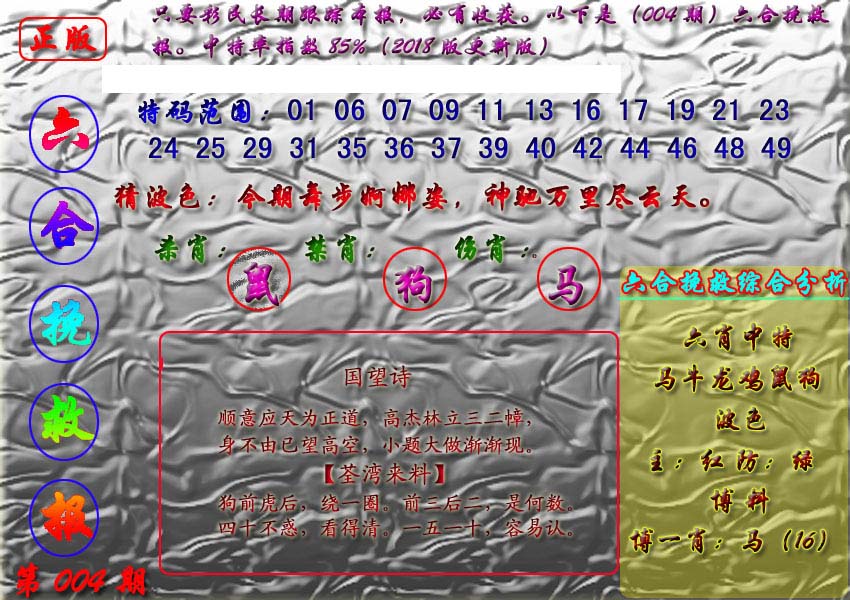 正版
只要彩民长期跟踪本报，必有收获。以下是（004期）六合挽救
报。中特率指数85%（2018版更新版）
六合挽救报
第004期
特码范围：01 06 07 09 11 13 16 17 19 21 23
24 25 29 31 35 36 37 39 40 42 44 46 48 49
猜波色：今期舞步婀娜姿，神驰万里尽云天。
杀肖：鼠 禁肖：狗 伤肖：马
国望诗
顺意应天为正道，高杰林立三二幛，
身不由已望高空，小题大做渐渐现。
【荃湾来料】
狗前虎后，绕一圈。前三后二，是何数。
四十不惑，看得清。一五一十，容易认。
六合挽救综合分析
六肖中特
马牛龙鸡鼠狗
波色
主：红防：绿
博料
博一肖：马（16）